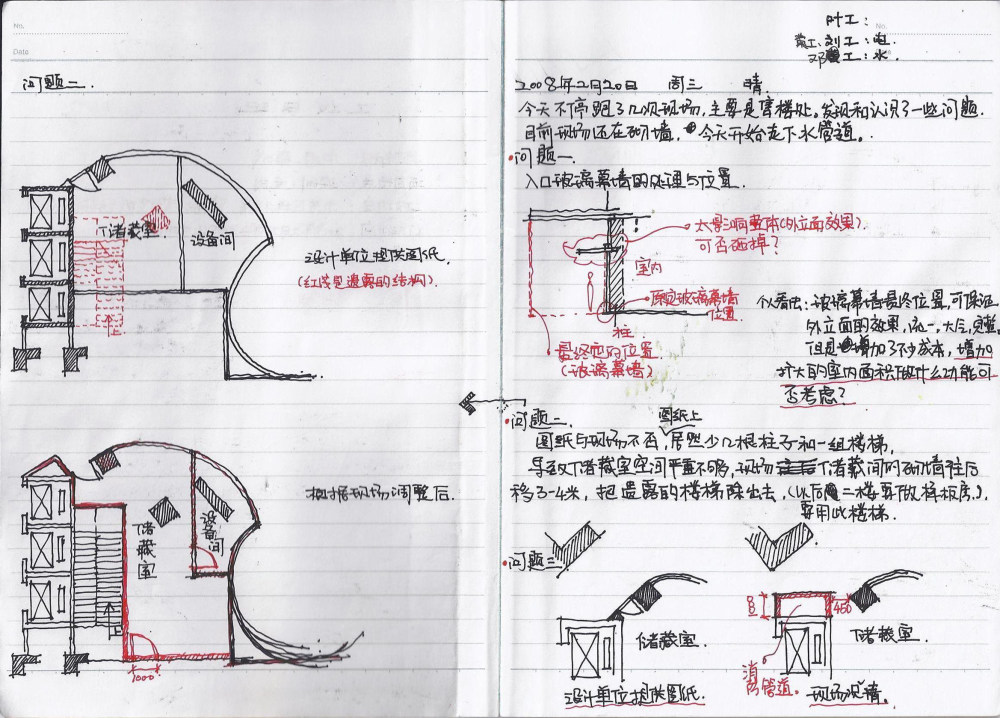 No.
Data
问题二
下储藏室
设备间
设计单位提供图纸.
(红线是遗露的结构).
根据现场调整后.
储藏室
设备间
上
1000
No.
叶工:
刘工:电.
邓工:水.
2008年2月20日 周三 晴
今天不停跑了几次现场,主要是售楼处。发现和认识了一些问题.
目前现场还在砌墙,今天开始走下水管道。
问题一.
入口玻璃幕墙的处理与位置.
太影响整体(外立面效果)
可否砸掉?
室内
原定玻璃幕墙
位置.
柱.
最终定的位置
(玻璃幕墙)
个人看法:玻璃幕墙最终位置,可保证
外立面的效果,统一,大气,完整.
但是增加了不少成本,增加
扩大的室内面积做什么功能可
否考虑?
问题二.
图纸上
图纸与现场不否,居然少几根柱子和一组楼梯,
导致下储藏室空间严重不够,现场下储藏间的砌墙往后
移3-4米,把遗露的楼梯除出去,(以后二楼要做样板房.)
要用此楼梯.
问题三
下储藏室.
设计单位提供图纸.
450
下储藏室.
消防管道.
现场况情。